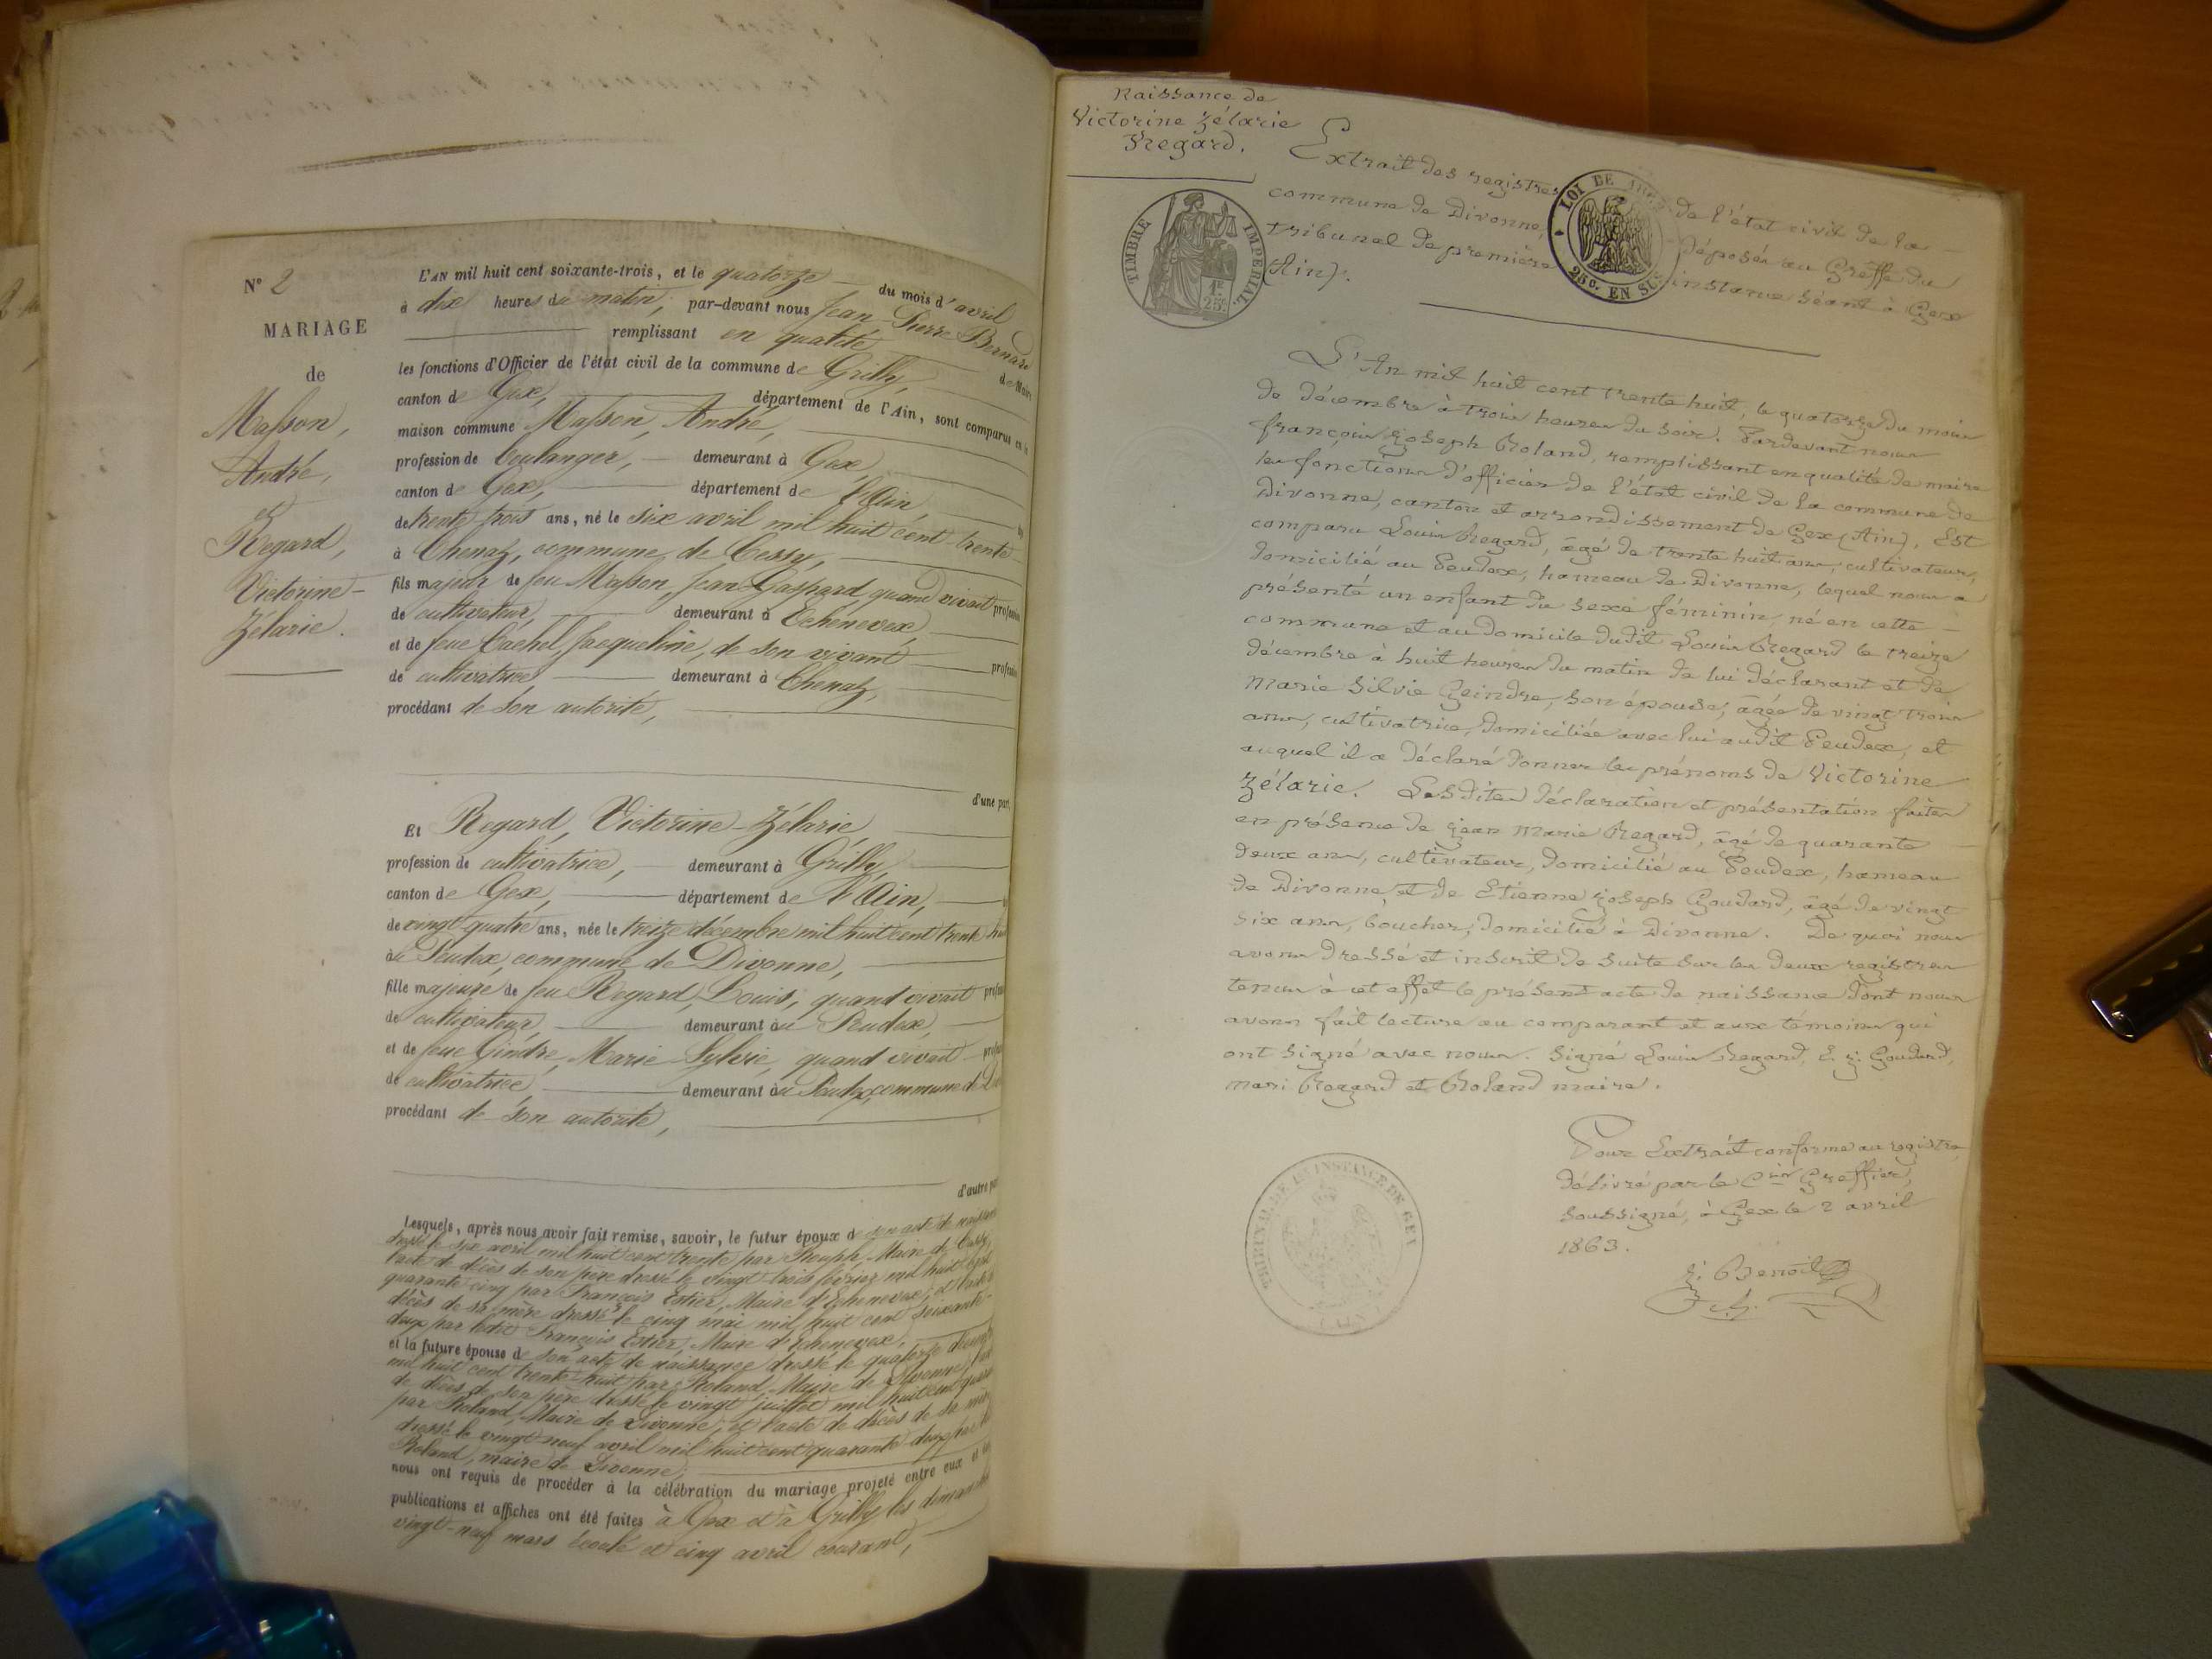 N° 2
MARIAGE
de
Masson,
André,
et
Regard,
Victorine-
Zélarie.
L'AN mil huit cent soixante-trois, et le quatorze du mois d'avril
à dix heures du matin, par-devant nous Jean Pierre Bernard
remplissant en qualité de Maire
les fonctions d'Officier de l'état civil de la commune de Grilly,
canton de Gex, département de l'Ain, sont comparus en la
maison commune Masson, André,
profession de boulanger, demeurant à Gex,
canton de Gex, département de l'Ain,
de trente trois ans, né le six avril mil huit cent trente
à Chenaz, commune de Cessy,
fils majeur de feu Masson, Jean Gaspard, quand vivait profession
de cultivateur, demeurant à Echenevex,
et de feue Cachel, Jacqueline, de son vivant profession
de cultivatrice, demeurant à Chenaz,
procédant de son autorité,
d'une part,
Et Regard, Victorine-Zélarie,
profession de cultivatrice, demeurant à Grilly,
canton de Gex, département de l'Ain,
de vingt quatre ans, née le treize décembre mil huit cent trente huit
au Peudex, commune de Divonne,
fille majeure de feu Regard, Louis, quand vivait
de cultivateur, demeurant au Peudex,
et de feue Gindre, Marie Sylvie, quand vivait
de cultivatrice, demeurant au Peudex, commune de
procédant de son autorité,
d'autre part
Lesquels, après nous avoir fait remise, savoir, le futur époux de son acte de naissance
dressé le six avril mil huit cent trente par Maire de Cessy,
l'acte de décès de son père dressé le vingt trois février mil huit cent
quarante cinq par François Estier, Maire d'Echenevex, et l'acte de
décès de sa mère dressé le cinq mai mil huit cent soixante-
deux par ledit François Estier, Maire d'Echenevex,
et la future épouse de son acte de naissance dressé le quatorze décembre
mil huit cent trente huit par Roland, Maire de Divonne,
de décès de son père dressé le vingt juillet mil huit cent
par Roland, Maire de Divonne, et l'acte de décès de sa mère
dressé le vingt neuf avril mil huit cent quarante deux par
Roland, maire de Divonne,
nous ont requis de procéder à la célébration du mariage projeté entre eux et
publications et affiches ont été faites à Gex et à Grilly les dimanches
vingt-neuf mars écoulé et cinq avril courant,
Naissance de
Victorine Zélarie
Regard.
TIMBRE IMPERIAL
1F. 25c.
LOI DE
25c. EN SUS
Extrait des registres de l'état civil de la
commune de Divonne, déposés au Greffe du
tribunal de première instance séant à Gex
(Ain).
L'An mil huit cent trente huit, le quatorze du mois
de décembre à trois heures du soir. Pardevant nous
françois Joseph Roland, remplissant en qualité de maire
les fonctions d'officier de l'état civil de la commune de
Divonne, canton et arrondissement de Gex (Ain), Est
comparu Louis Regard, âgé de trente huit ans, cultivateur,
domicilié au Peudex, hameau de Divonne, lequel nous a
présenté un enfant du sexe féminin, né en cette
commune et au domicile dudit Louis Regard le treize
décembre à huit heures du matin de lui déclarant et de
Marie Silvie Geindre, son épouse, âgée de vingt trois
ans, cultivatrice, domiciliée avec lui audit Peudex, et
auquel il a déclaré donner les prénoms de Victorine
Zélarie. Lesdites déclaration et présentation faites
en présence de Jean Marie Regard, âgé de quarante
deux ans, cultivateur, domicilié au Peudex, hameau
de Divonne, et de Etienne Joseph Goudard, âgé de vingt
six ans, boucher, domicilié à Divonne. De quoi nous
avons dressé et inscrit de suite sur les deux registres
tenus à cet effet le présent acte de naissance dont nous
avons fait lecture au comparant et aux témoins qui
ont signé avec nous. Signé Louis Regard, E. J. Goudard,
mari Regard et Roland maire.
Pour Extrait conforme au registre
délivré par le Cis Greffier,
soussigné, à Gex le 2 avril
1863.
J. Benoit
TRIBUNAL DE 1re INSTANCE DE GEX
(AIN)